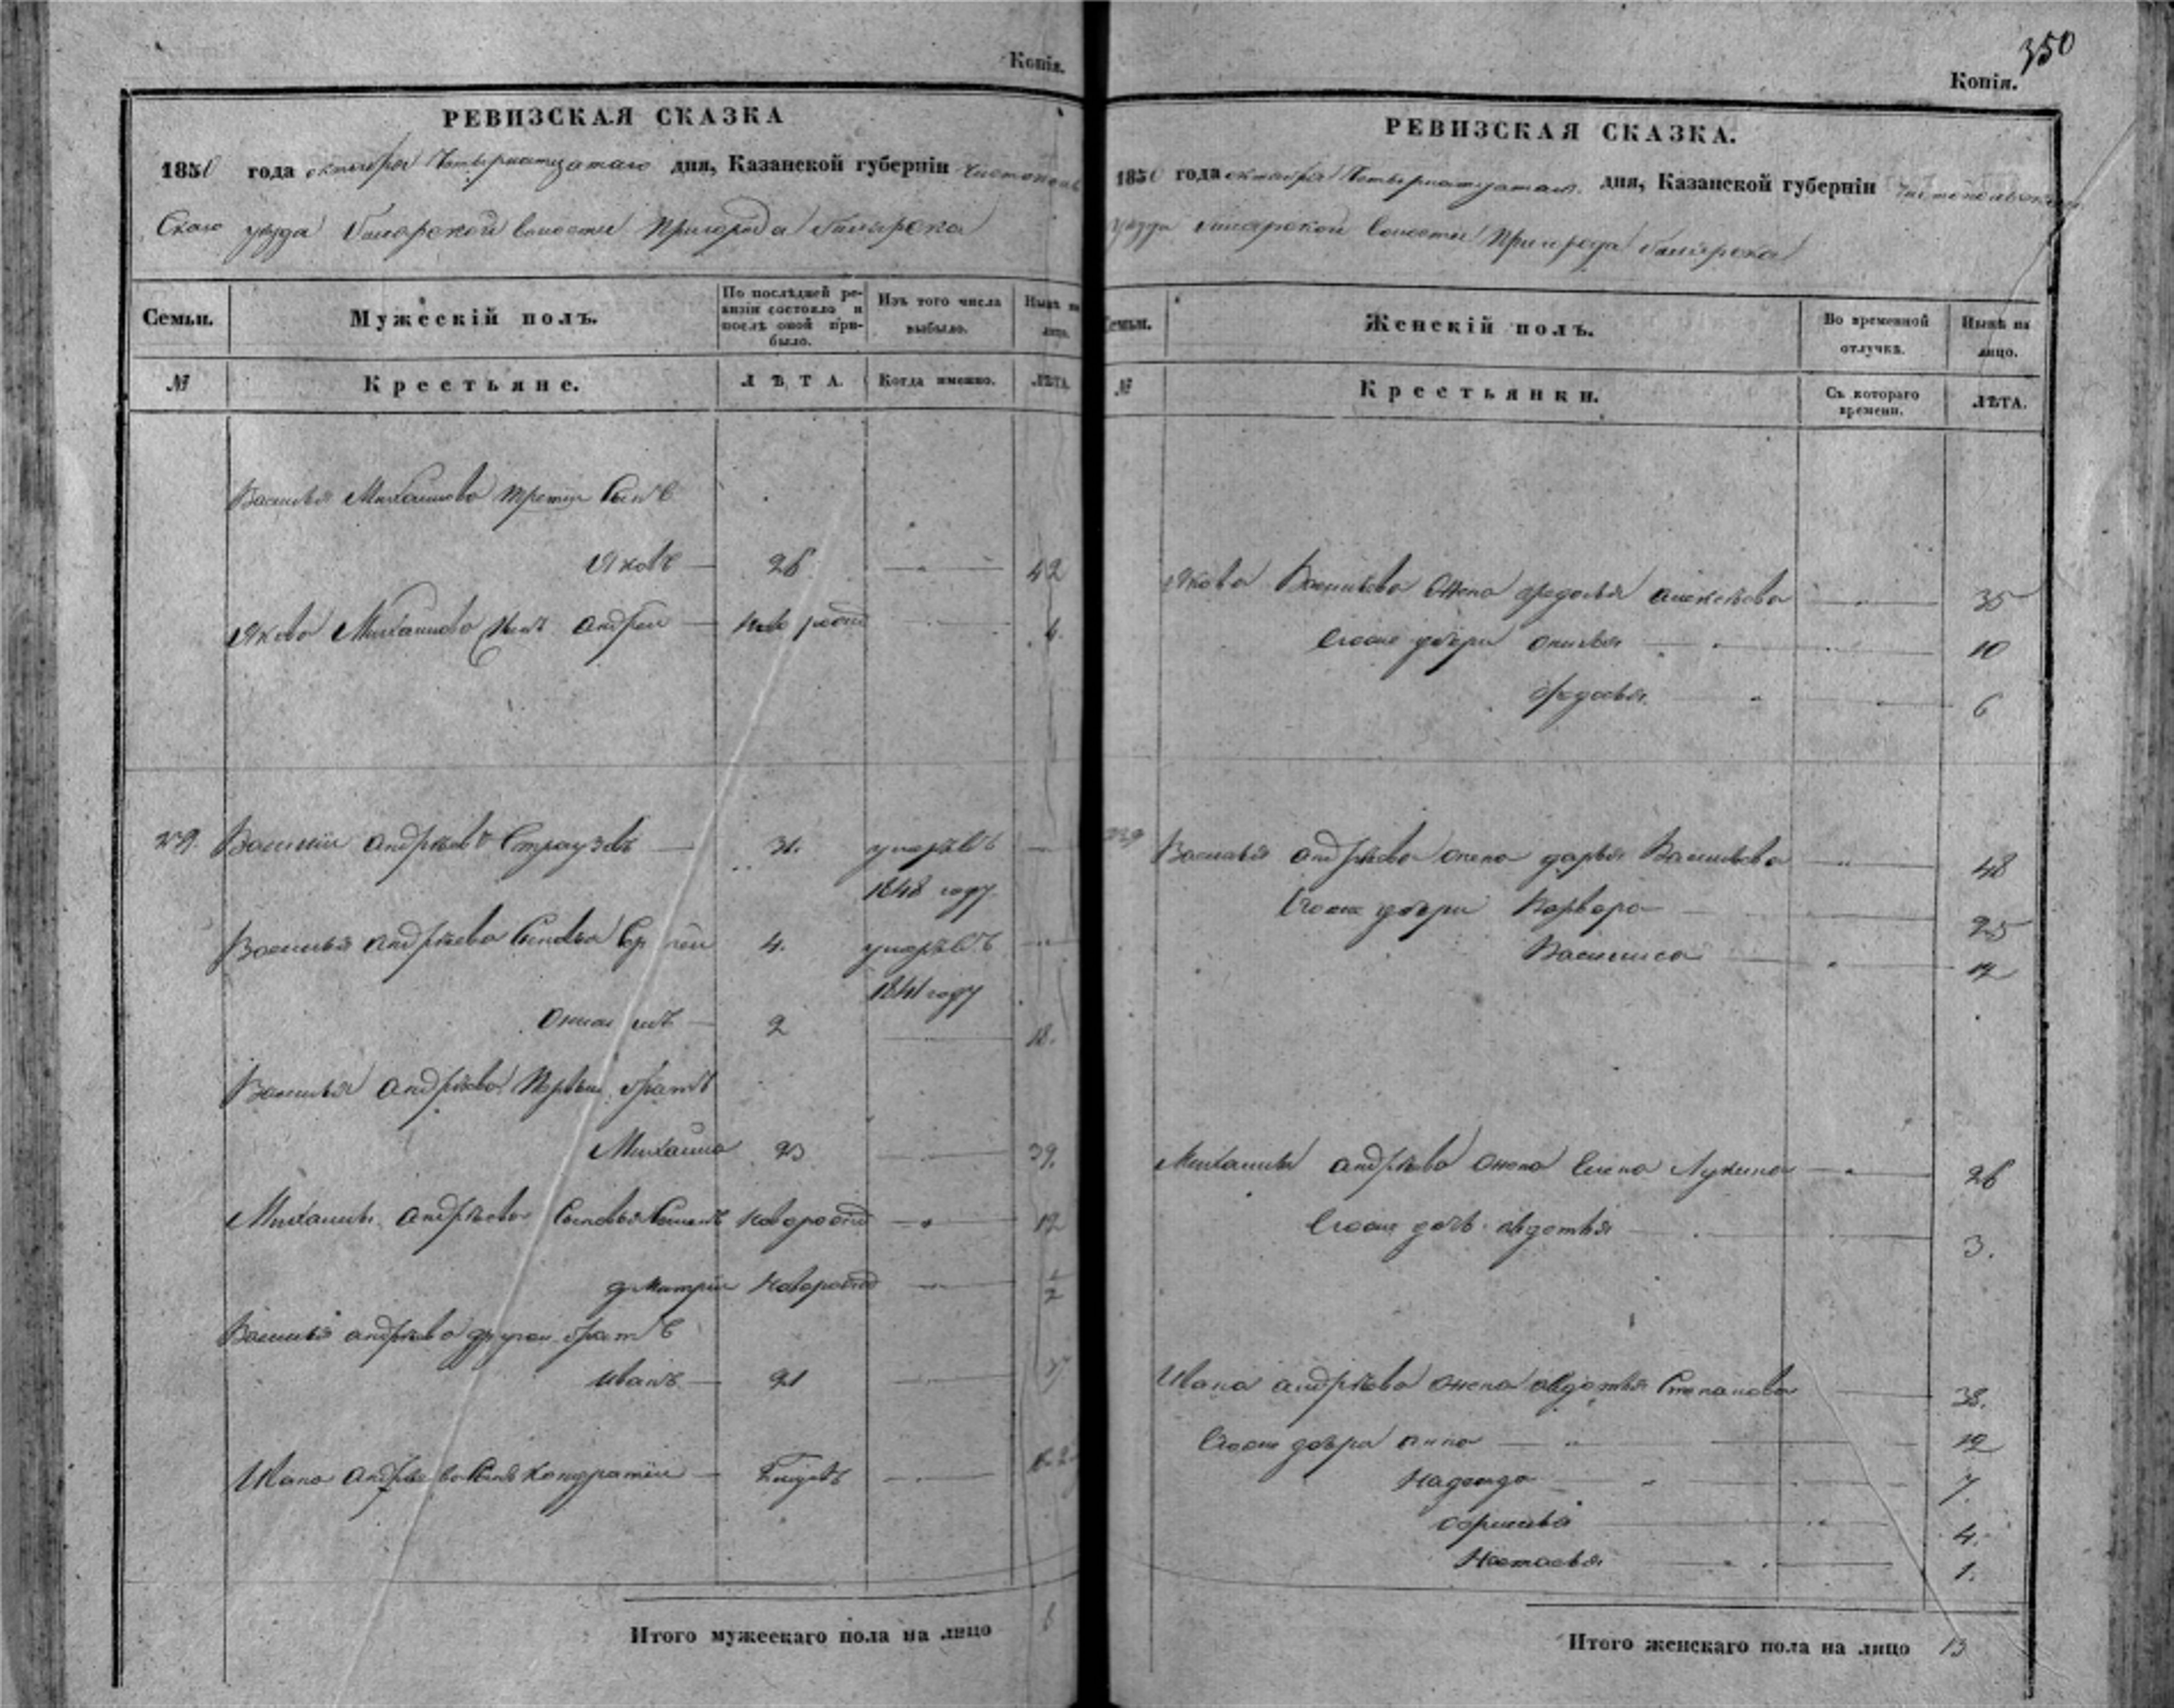 Копія.
РЕВИЗСКАЯ СКАЗКА
1850 года октября Четырнатцатаго дня, Казанской губерніи Чистополь
Скаго уѣзда Билярской волости Пригорода Билярска
Семьи.
Мужескій полъ.
По послѣдней ре-
визіи состояло и
послѣ оной при-
было.
Изъ того числа
выбыло.
Нынѣ на
лицо.
№
Крестьяне.
ЛѢТА.
Когда именно.
ЛѢТА.
Василья Михаилова третій Сынъ
Яковъ 26 42
Якова Михаилова Сынъ андрей 6
Василій андрѣевъ 31. умеръ въ
1848 году
Василья андрѣева Сыновья Сергей 4. умеръ въ
1841 году
2 18.
Василья андрѣева Первый братъ
Михаила 23 39.
Михаилы андрѣева Сыновья Новорожд 12
дматрій Новорожд
Василья андрѣева другой братъ
Иванъ 21
Ивана андрѣева Сынъ Кондратій
Итого мужескаго пола на лицо 6
350
Копія.
РЕВИЗСКАЯ СКАЗКА.
1850 года октября Четырнатцатаго дня, Казанской губерніи Чистопольскаго
уѣзда Билярской волости Пригорода Билярска
Семьи.
Женскій полъ.
Во временной
отлучкѣ.
Нынѣ на
лицо.
№
Крестьянки.
Съ котораго
времени.
ЛѢТА.
Якова Васильева жена федосья алексѣева 35
Егоже дочери 10
федосья 6
Василья андрѣева жена дарья Васильева 48
Егоже дочери Варвара 25
Василиса 12
Михаилы андрѣева жена Елена Лукина 26
Егоже дочь авдотья 3.
Ивана андрѣева жена авдотья Степанова 38.
Егоже дочери анна 12
Надежда 7
4.
Настасья 1.
Итого женскаго пола на лицо 13